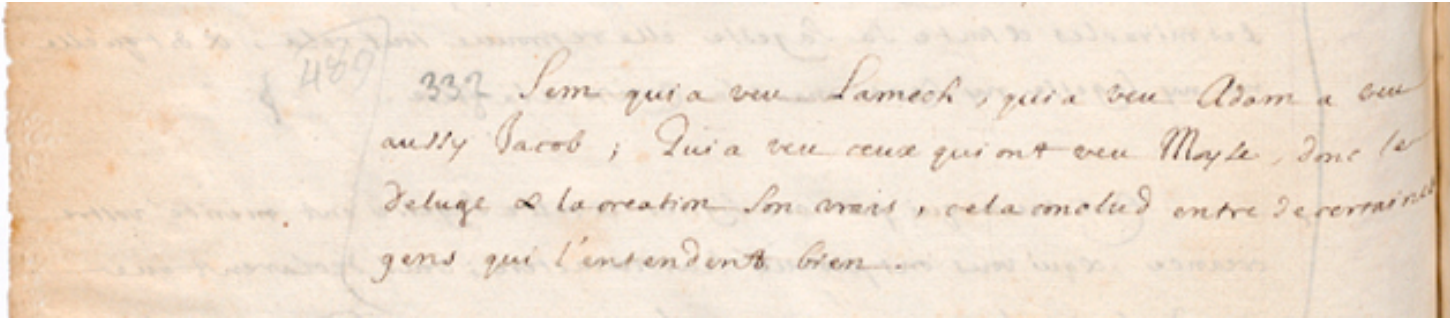 480
332 Sem qui a veu Lamech, qui a veu Adam a veu
aussy Jacob ; Qui a veu ceux qui ont veu Moyse, donc le
deluge & la creation son vrais, cela conclud entre de certaines
gens qui l'entendent bien.